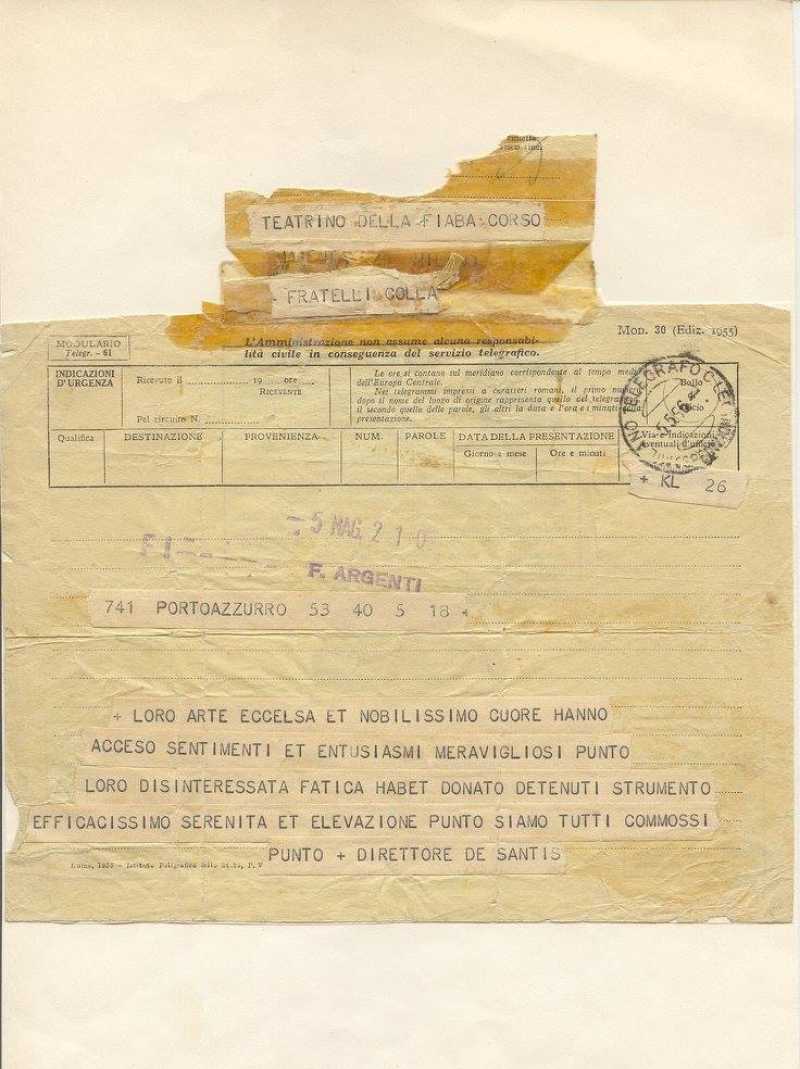 TEATRINO DELLA FIABA CORSO
FRATELLI COLLA
Mod. 30 (Ediz. 1955)
MODULARIO
Telegr. - 61
L'Amministrazione non assume alcuna responsabi-
lità civile in conseguenza del servizio telegrafico.
INDICAZIONI
D'URGENZA
Ricevuto il 19 ore
RICEVENTE
Pel circuito N.
Le ore si contano sul meridiano corrispondente al tempo medio
dell'Europa Centrale.
Nei telegrammi impressi a caratteri romani, il primo
dopo il nome del luogo di origine rappresenta quello del telegramma
il secondo quello delle parole, gli altri la data e l'ora e i minuti
presentazione.
Bollo
Qualifica DESTINAZIONE PROVENIENZA NUM. PAROLE DATA DELLA PRESENTAZIONE
Giorno e mese Ore e minuti
Via e Indicazioni
eventuali d'ufficio
TELEGRAFO
+ KL 26
5 MAG. 210
F. ARGENTI
741 PORTOAZZURRO 53 40 5 18
+ LORO ARTE ECCELSA ET NOBILISSIMO CUORE HANNO
ACCESO SENTIMENTI ET ENTUSIASMI MERAVIGLIOSI PUNTO
LORO DISINTERESSATA FATICA HABET DONATO DETENUTI STRUMENTO
EFFICACISSIMO SERENITA ET ELEVAZIONE PUNTO SIAMO TUTTI COMMOSSI
PUNTO + DIRETTORE DE SANTIS